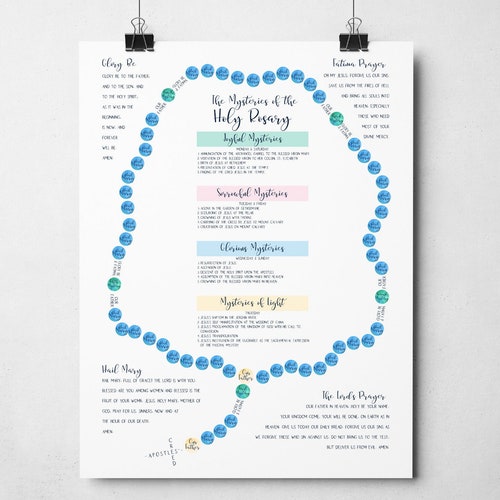 Glory Be
GLORY BE TO THE FATHER,
AND TO THE SON, AND
TO THE HOLY SPIRIT,
AS IT WAS IN THE
BEGINNING,
IS NOW, AND
FOREVER
WILL BE.
AMEN.
Fatima Prayer
OH MY JESUS, FORGIVE US OUR SINS
SAVE US FROM THE FIRES OF HELL
AND BRING ALL SOULS INTO
HEAVEN, ESPECIALLY
THOSE WHO NEED
MOST OF YOUR
DIVINE MERCY.
The Mysteries of the
Holy Rosary
Joyful Mysteries
MONDAY & SATURDAY
1. ANNUNCIATION OF THE ARCHANGEL GABRIEL TO THE BLESSED VIRGIN MARY
2. VISITATION OF THE BLESSED VIRGIN TO HER COUSIN ST. ELIZABETH
3. BIRTH OF JESUS IN BETHLEHEM
4. PRESENTATION OF CHRIST JESUS AT THE TEMPLE
5. FINDING OF THE CHRIST JESUS IN THE TEMPLE
Sorrowful Mysteries
TUESDAY & FRIDAY
1. AGONY IN THE GARDEN OF GETHSEMANE
2. SCOURGING OF JESUS AT THE PILLAR
3. CROWNING OF JESUS WITH THORNS
4. CARRYING OF THE CROSS BY JESUS TO MOUNT CALVARY
5. CRUCIFIXION OF JESUS ON MOUNT CALVARY
Glorious Mysteries
WEDNESDAY & SUNDAY
1. RESURRECTION OF JESUS
2. ASCENSION OF JESUS
3. DESCENT OF THE HOLY SPIRIT UPON THE APOSTLES
4. ASSUMPTION OF THE BLESSED VIRGIN MARY INTO HEAVEN
5. CROWNING OF THE BLESSED VIRGIN MARY IN HEAVEN
Mysteries of Light
THURSDAY
1. JESUS' BAPTISM IN THE JORDAN RIVER
2. JESUS' SELF MANIFESTATION AT THE WEDDING OF CANA
3. JESUS' PROCLAMATION OF THE KINGDOM OF GOD WITH HIS CALL TO
CONVERSION
4. JESUS' TRANSFIGURATION
5. JESUS' INSTITUTION OF THE EUCHARIST AS THE SACRAMENTAL EXPRESSION
OF THE PASCHAL MYSTERY
Hail Mary
HAIL MARY, FULL OF GRACE! THE LORD IS WITH YOU.
BLESSED ARE YOU AMONG WOMEN AND BLESSED IS THE
FRUIT OF YOUR WOMB, JESUS. HOLY MARY, MOTHER OF
GOD, PRAY FOR US, SINNERS, NOW AND AT
THE HOUR OF OUR DEATH.
AMEN.
The Lord's Prayer
OUR FATHER IN HEAVEN HOLY BE YOUR NAME,
YOUR KINGDOM COME, YOUR WILL BE DONE, ON EARTH AS IN
HEAVEN. GIVE US TODAY OUR DAILY BREAD. FORGIVE US OUR SINS AS
WE FORGIVE THOSE WHO SIN AGAINST US. DO NOT BRING US TO THE TEST,
BUT DELIVER US FROM EVIL. AMEN.
Our
Father
Our
Father
APOSTLES'
CREED